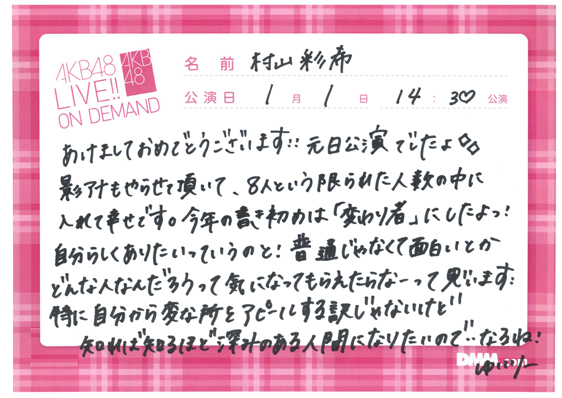 AKB48
LIVE!!
ON DEMAND
AKB
48
名前 村山彩希
公演日 1月1日 14:30 公演
あけましておめでとうございます!! 元日公演でしたよ
影アナもやらせて頂いて、8人という限られた人数の中に
入れて幸せです。今年の書き初めは「変わり者」にしたよっ!
自分らしくありたいっていうのと! 普通じゃなくて面白いとか
どんな人なんだろうって気になってもらえたらなーって思います!
特に自分から変な所をアピールする訳じゃないけど
知れば知るほど深みのある人間になりたいので‥なるね!
DMM.com
ゆいりー